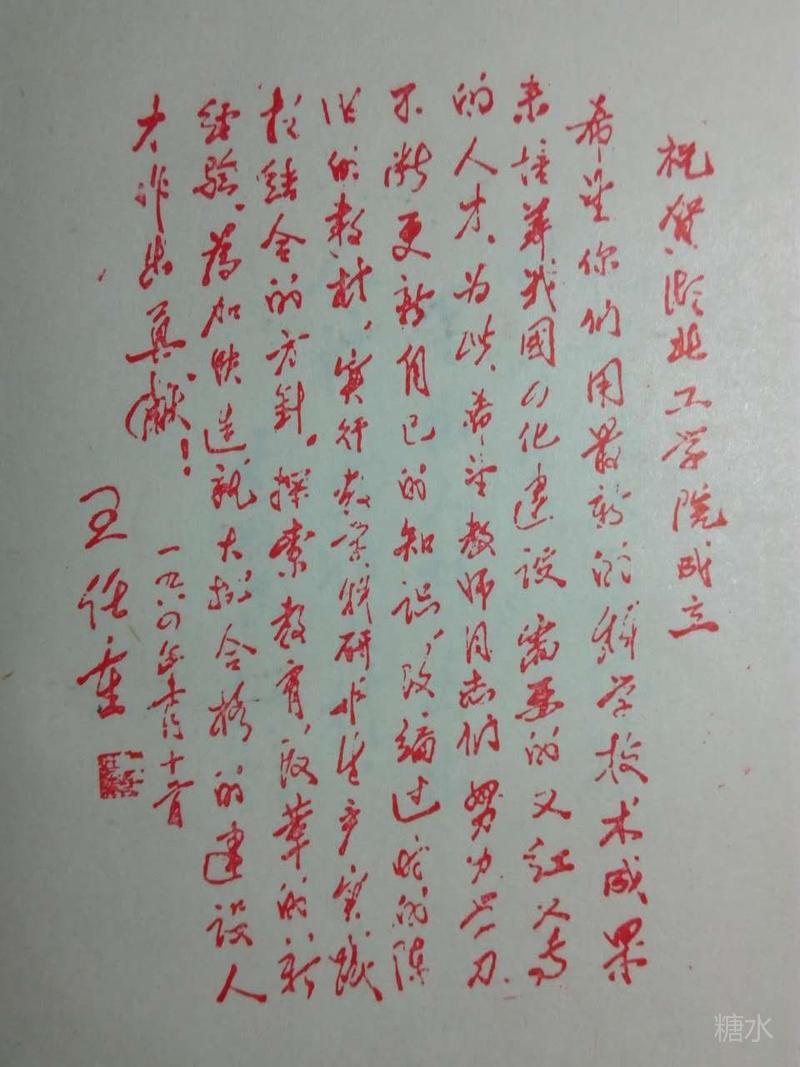 祝贺湖北工学院成立
希望你们用最新的科学技术成果
来培养我國四化建设需要的又红又专
的人才、为此、希望教师同志们努力学习
不断更新自己的知识,改编过时的陈
旧的教材,实行教学科研与生产实践
相结合的方針。探索教育改革的新
经验、為加快造就大批合格的建设人
才作出貢献!
一九八四年十月十
王任重
糖水